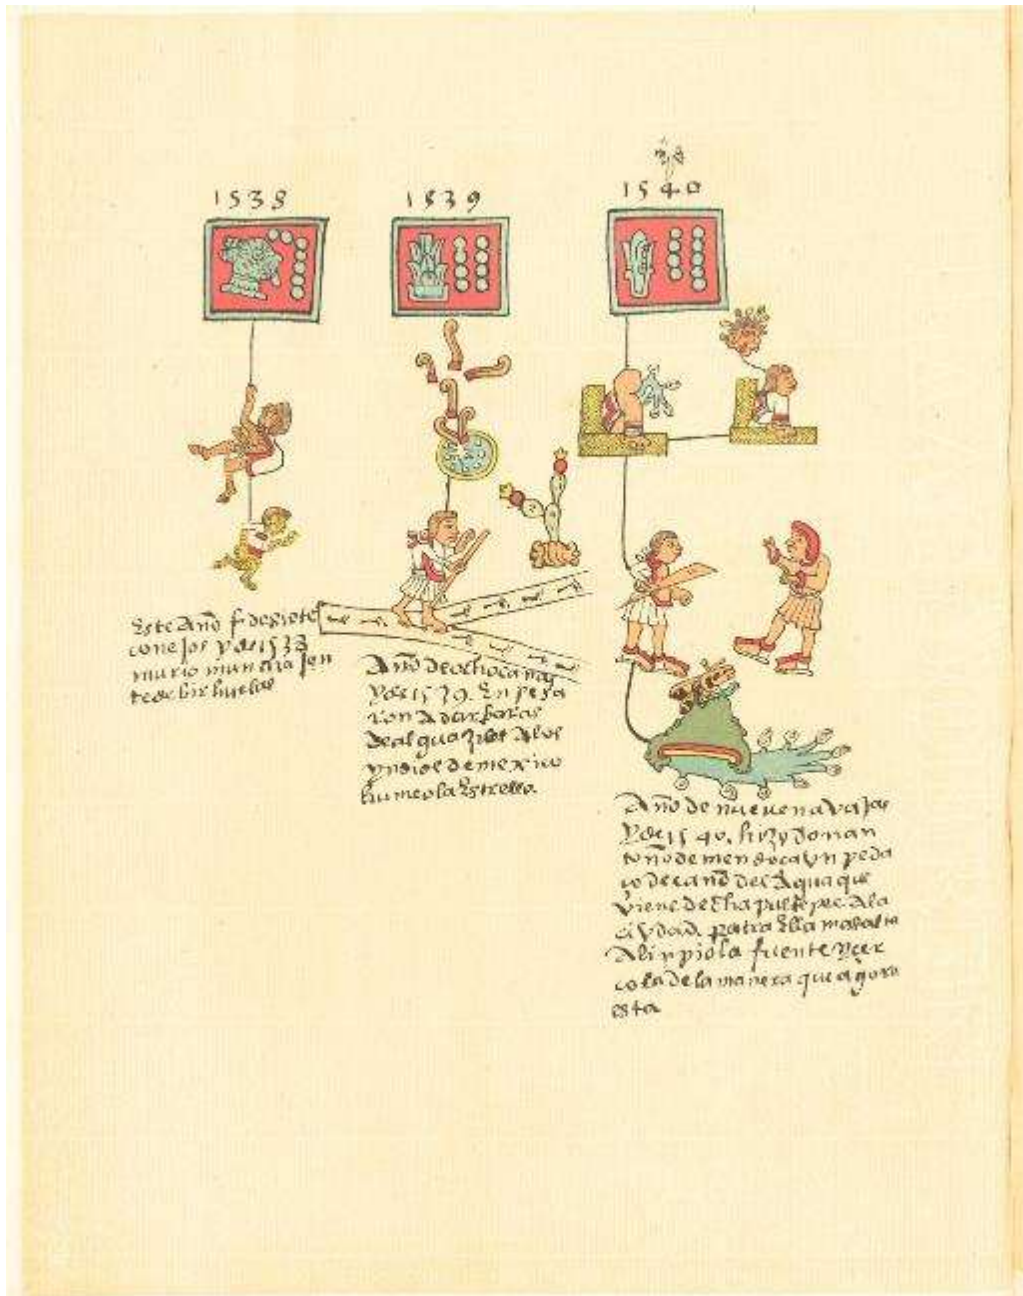 1538
1539
1540
Este Año f desiete
conejos y de 1538
murio muncha jen
te de birhuelas
Año de ocho cañas
y de 1539. Enpesa
ron A dar baras
de alguaziles A los
yndios de mexico
humeo la Estrella
Año de nueve navajas
y de 1540. hizo don an
toño de mendoca un peda
ço de caño del Agua que
viene de Chapultepec A la
ciudad. Ella mas alta
Alinpio la fuente y cer
cola de la manera que agora
esta